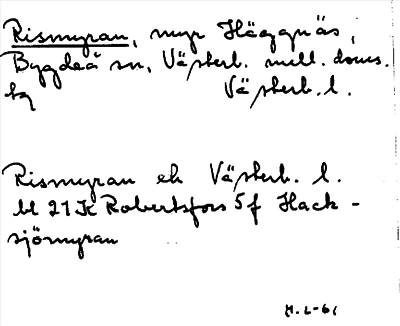 Rismyran, myr Häggnäs,
Bygdeå sn, Västerb. mell. doms.
hg Västerb. l.
Rismyran ek Västerb. l.
bl 21 K Robertsfors 5 f Hack-
sjömyran